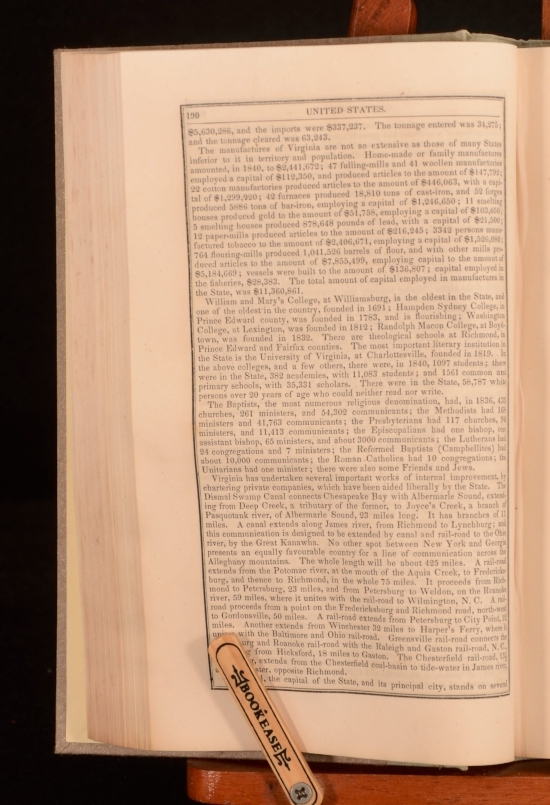 190 UNITED STATES.
$5,630,286, and the imports were $337,237. The tonnage entered was 34,275;
and the tonnage cleared was 63,243.
The manufactures of Virginia are not so extensive as those of many States
inferior to it in territory and population. Home-made or family manufactures
amounted, in 1840, to $2,441,672; 47 fulling-mills and 41 woollen manufactories
employed a capital of $112,350, and produced articles to the amount of $147,792;
22 cotton manufactories produced articles to the amount of $446,063, with a capi-
tal of $1,299,920; 42 furnaces produced 18,810 tons of cast-iron, and 52 forges
produced 5886 tons of bar-iron, employing a capital of $1,246,650; 11 smelting
houses produced gold to the amount of $51,758, employing a capital of
5 smelting houses produced 878,648 pounds of lead, with a capital of $21,500;
12 paper-mills produced articles to the amount of $216,245; 3342 persons manu-
factured tobacco to the amount of $2,406,671, employing a capital of
764 flouring-mills produced 1,041,526 barrels of flour, and with other mills pro-
duced articles to the amount of $7,855,499, employing capital to the amount of
$5,184,669; vessels were built to the amount of $136,807; capital employed in
the fisheries, $28,383. The total amount of capital employed in manufactures in
the State, was $11,360,861.
William and Mary's College, at Williamsburg, is the oldest in the State, and
one of the oldest in the country, founded in 1691; Hampden Sydney College, in
Prince Edward county, was founded in 1783, and is flourishing; Washington
College, at Lexington, was founded in 1812; Randolph Macon College, at Boyd-
town, was founded in 1832. There are theological schools at Richmond, in
Prince Edward and Fairfax counties. The most important literary institution in
the State is the University of Virginia, at Charlottesville, founded in 1819. In
the above colleges, and a few others, there were, in 1840, 1097 students; there
were in the State, 382 academies, with 11,083 students; and 1561 common and
primary schools, with 35,331 scholars. There were in the State, 58,787 white
persons over 20 years of age who could neither read nor write.
The Baptists, the most numerous religious denomination, had, in 1836,
churches, 261 ministers, and 54,302 communicants; the Methodists had
ministers and 41,763 communicants; the Presbyterians had 117 churches,
ministers, and 11,413 communicants; the Episcopalians had one bishop, one
assistant bishop, 65 ministers, and about 3000 communicants; the Lutherans had
24 congregations and 7 ministers; the Reformed Baptists (Campbellites) had
about 10,000 communicants; the Roman Catholics had 10 congregations; the
Unitarians had one minister; there were also some Friends and Jews.
Virginia has undertaken several important works of internal improvement, by
chartering private companies, which have been aided liberally by the State. The
Dismal Swamp Canal connects Chesapeake Bay with Albermarle Sound, extend-
ing from Deep Creek, a tributary of the former, to Joyce's Creek, a branch of
Pasquotank river, of Albermarle Sound, 23 miles long. It has branches of 11
miles. A canal extends along James river, from Richmond to Lynchburg; and
this communication is designed to be extended by canal and rail-road to the Ohio
river, by the Great Kanawha. No other spot between New York and Georgia
presents an equally favourable country for a line of communication across the
Alleghany mountains. The whole length will be about 425 miles. A rail-road
extends from the Potomac river, at the mouth of the Aquia Creek, to Fredericks-
burg, and thence to Richmond, in the whole 75 miles. It proceeds from Rich-
mond to Petersburg, 23 miles, and from Petersburg to Weldon, on the Roanoke
river, 59 miles, where it unites with the rail-road to Wilmington, N. C. A rail-
road proceeds from a point on the Fredericksburg and Richmond road, north-west
to Gordonsville, 50 miles. A rail-road extends from Petersburg to City Point,
miles. Another extends from Winchester 32 miles to Harper's Ferry, where it
with the Baltimore and Ohio rail-road. Greensville rail-road connects the
and Roanoke rail-road with the Raleigh and Gaston rail-road, N. C.,
from Hicksford, 18 miles to Gaston. The Chesterfield rail-road,
extends from the Chesterfield coal-basin to tide-water in James river,
opposite Richmond.
the capital of the State, and its principal city, stands on several
BOOK EASEL